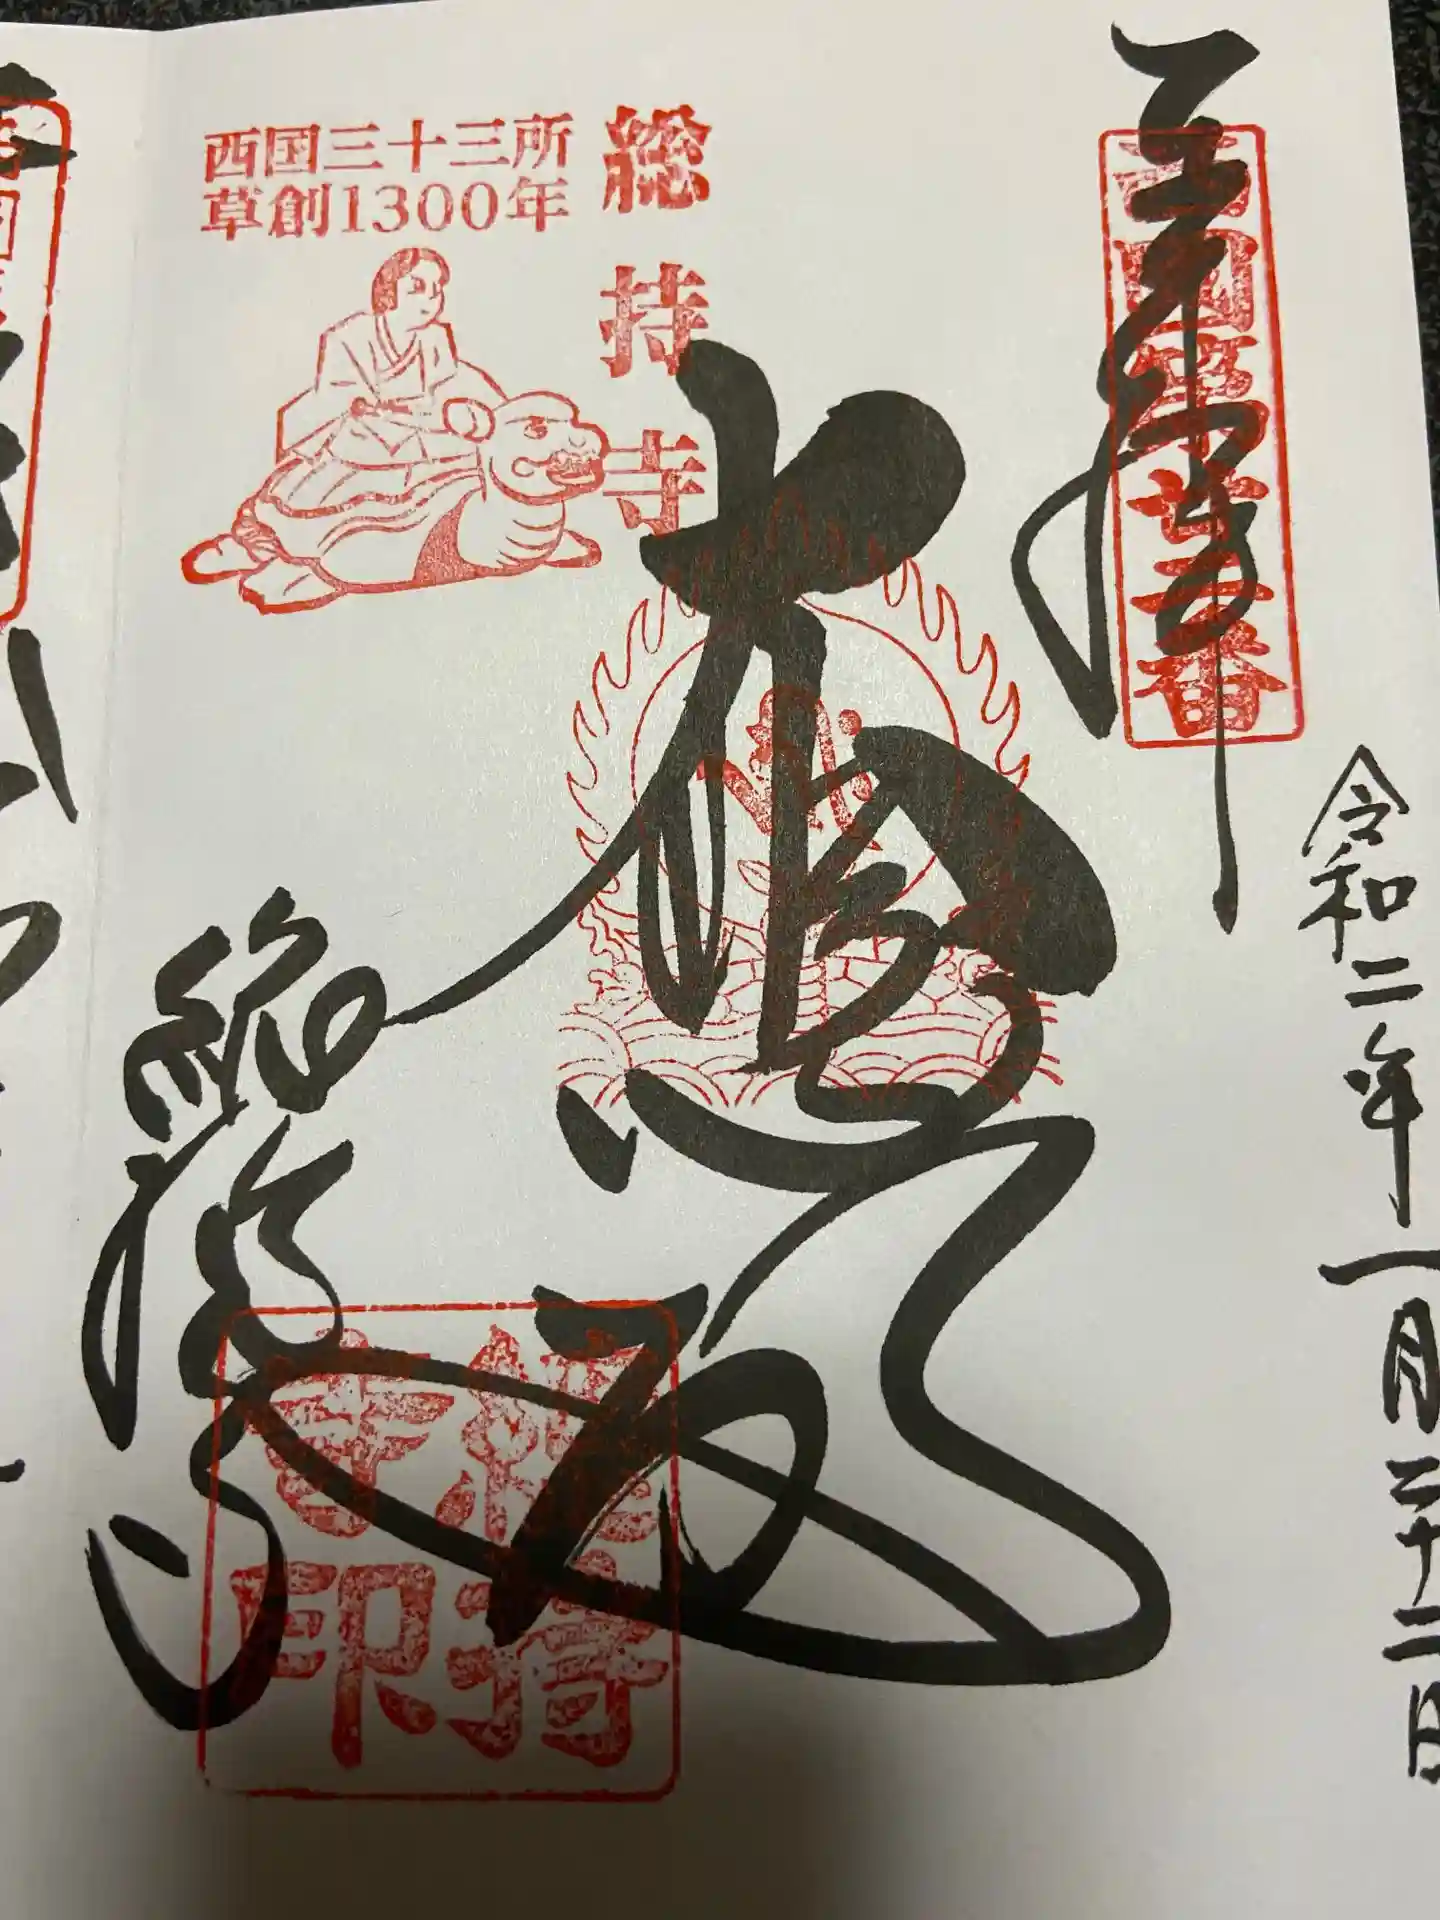 奉拝
西国第廿二番
令和二年一月二十二日
大悲殿
総持寺
西国三十三所
草創1300年
総持寺
総持
寺印